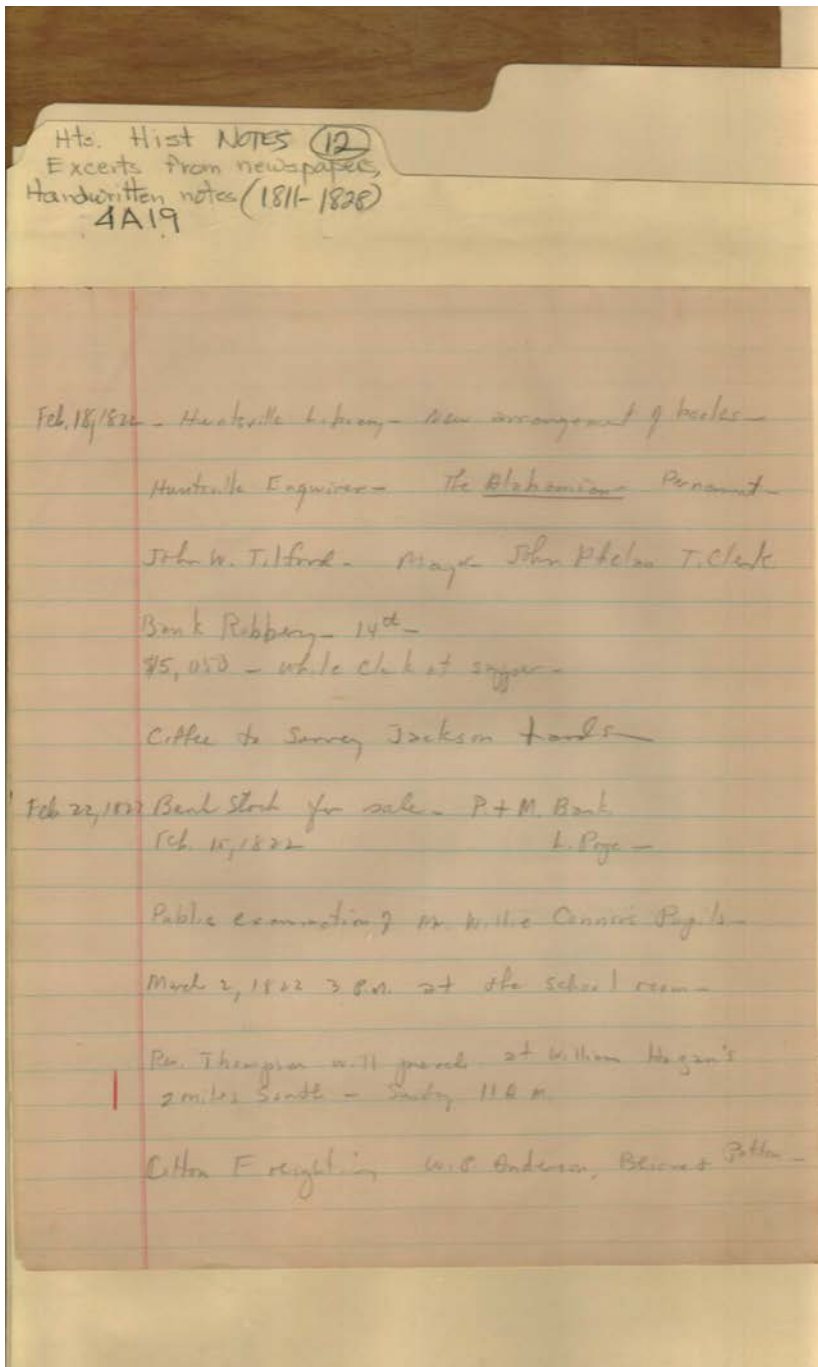 Hts. Hist NOTES (12)
Excerts from newspapers,
Handwritten notes (1811-1828)
4A19
Feb. 18, 1822 - Huntsville Library - New arrangement of books -
Huntsville Enquirer - The Alabamian -
John W. Tilford - Mayor John Phelan T. Clerk
Bank Robbery - 14th -
$5,050 - while clerk at supper -
Coffee to Survey Jackson
Feb 22, 1822 Bank Stock for sale - P + M. Bank
Feb. 15, 1822 L. Pope -
Public examination of Mr. Willie Conner's Pupils -
March 2, 1822 3 P.M. at the school room -
Rev. Thompson will preach at William Hogan's
2 miles South - Sunday 11 A.M.
Cotton Freighting W.P. Anderson, Beirne + Patton -